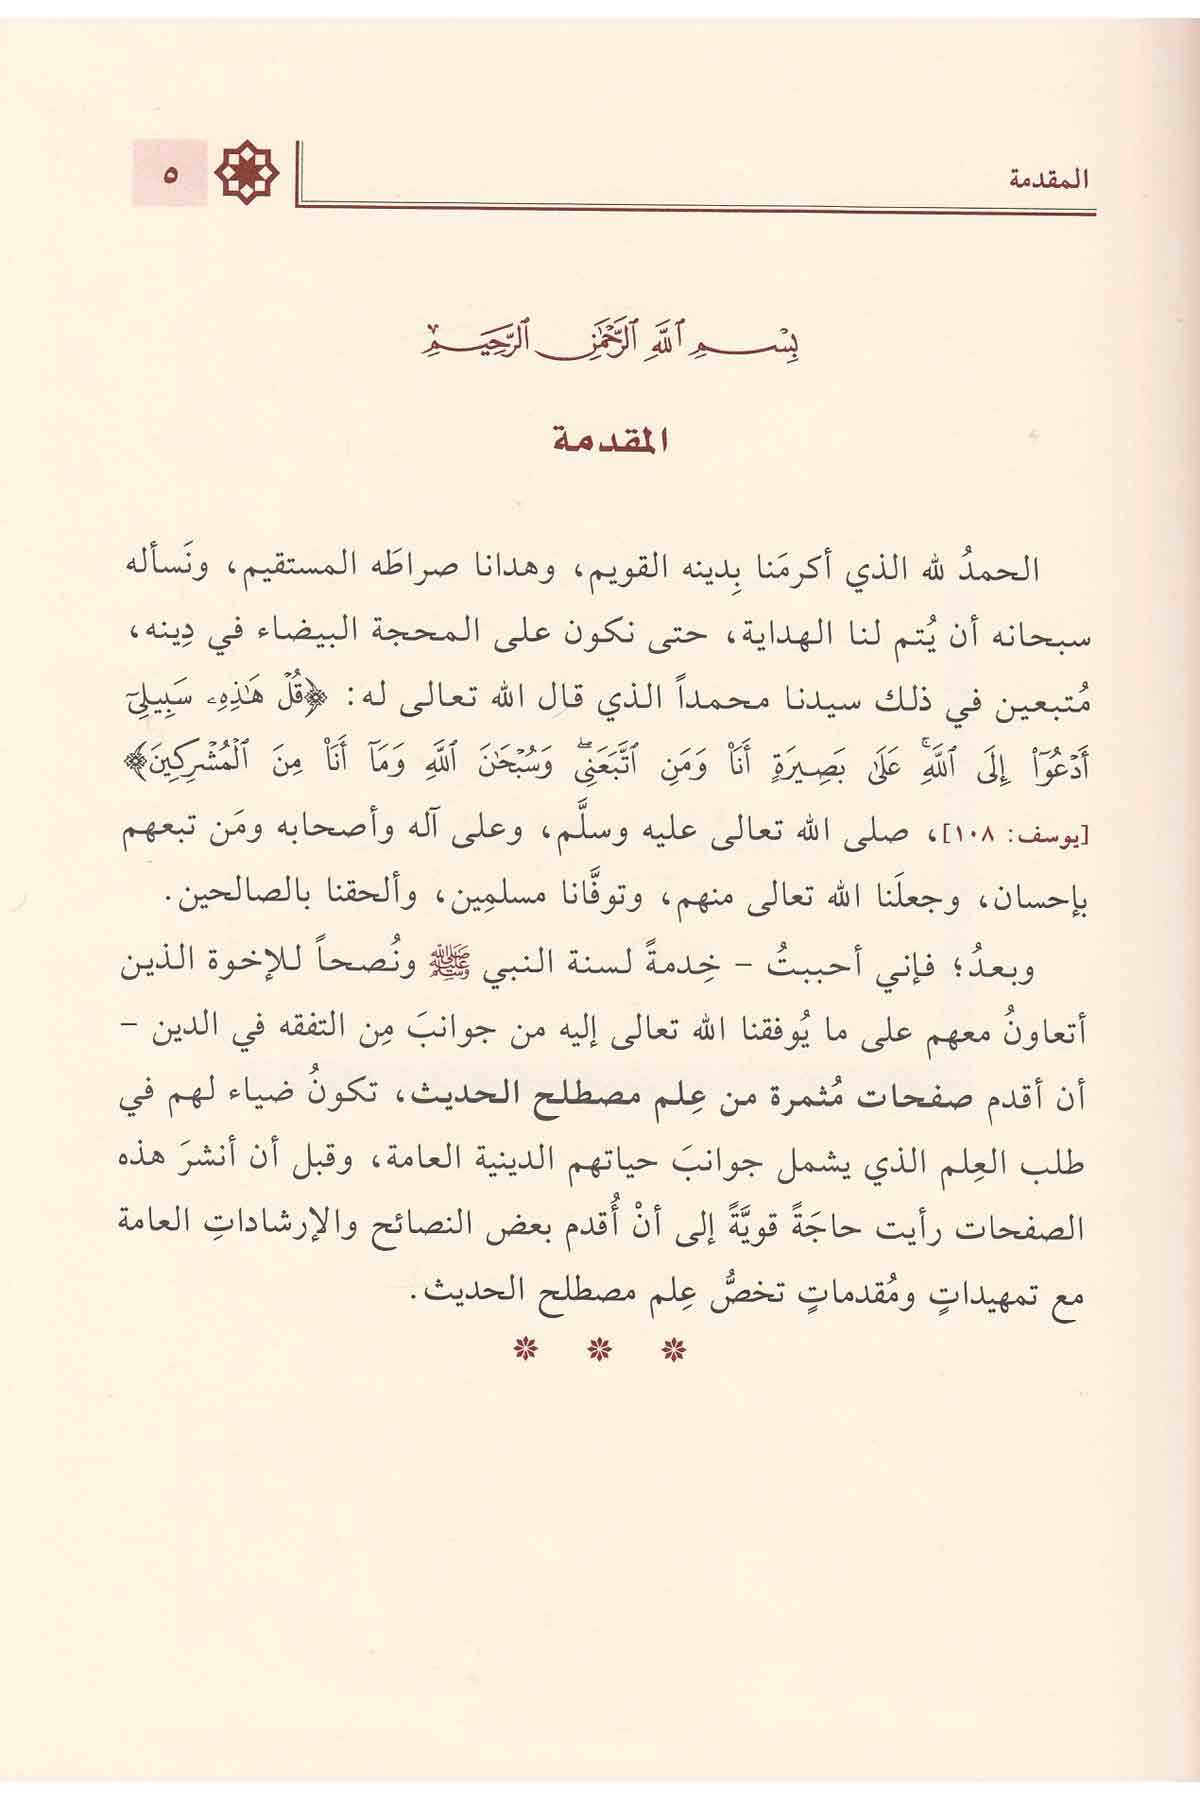 المقدمة
٥
بِسْمِ ٱللَّهِ ٱلرَّحْمَٰنِ ٱلرَّحِيمِ
المقدمة
الحمدُ لله الذي أكرمَنا بِدينه القويم، وهدانا صراطَه المستقيم، ونَسأله
سبحانه أن يُتم لنا الهداية، حتى نكون على المحجة البيضاء في دِينه،
مُتبعين في ذلك سيدنا محمداً الذي قال الله تعالى له: ﴿قُلْ هَٰذِهِۦ سَبِيلِىٓ
أَدْعُوٓا۟ إِلَى ٱللَّهِ ۚ عَلَىٰ بَصِيرَةٍ أَنَا۠ وَمَنِ ٱتَّبَعَنِى ۖ وَسُبْحَٰنَ ٱللَّهِ وَمَآ أَنَا۠ مِنَ ٱلْمُشْرِكِينَ﴾
[يوسف: ١٠٨]، صلى الله تعالى عليه وسلَّم، وعلى آله وأصحابه ومَن تبعهم
بإحسان، وجعلَنا الله تعالى منهم، وتوفَّانا مسلمِين، وألحقنا بالصالحين.
وبعدُ؛ فإني أحببتُ - خِدمةً لسنة النبي ﷺ ونُصحاً للإخوة الذين
أتعاونُ معهم على ما يُوفقنا الله تعالى إليه من جوانبَ مِن التفقه في الدين -
أن أقدم صفحات مُثمرة من عِلم مصطلح الحديث، تكونُ ضياء لهم في
طلب العِلم الذي يشمل جوانبَ حياتهم الدينية العامة، وقبل أن أنشرَ هذه
الصفحات رأيت حاجَةً قويَّةً إلى أنْ أُقدم بعض النصائح والإرشاداتِ العامة
مع تمهيداتٍ ومُقدماتٍ تخصُّ عِلم مصطلح الحديث.